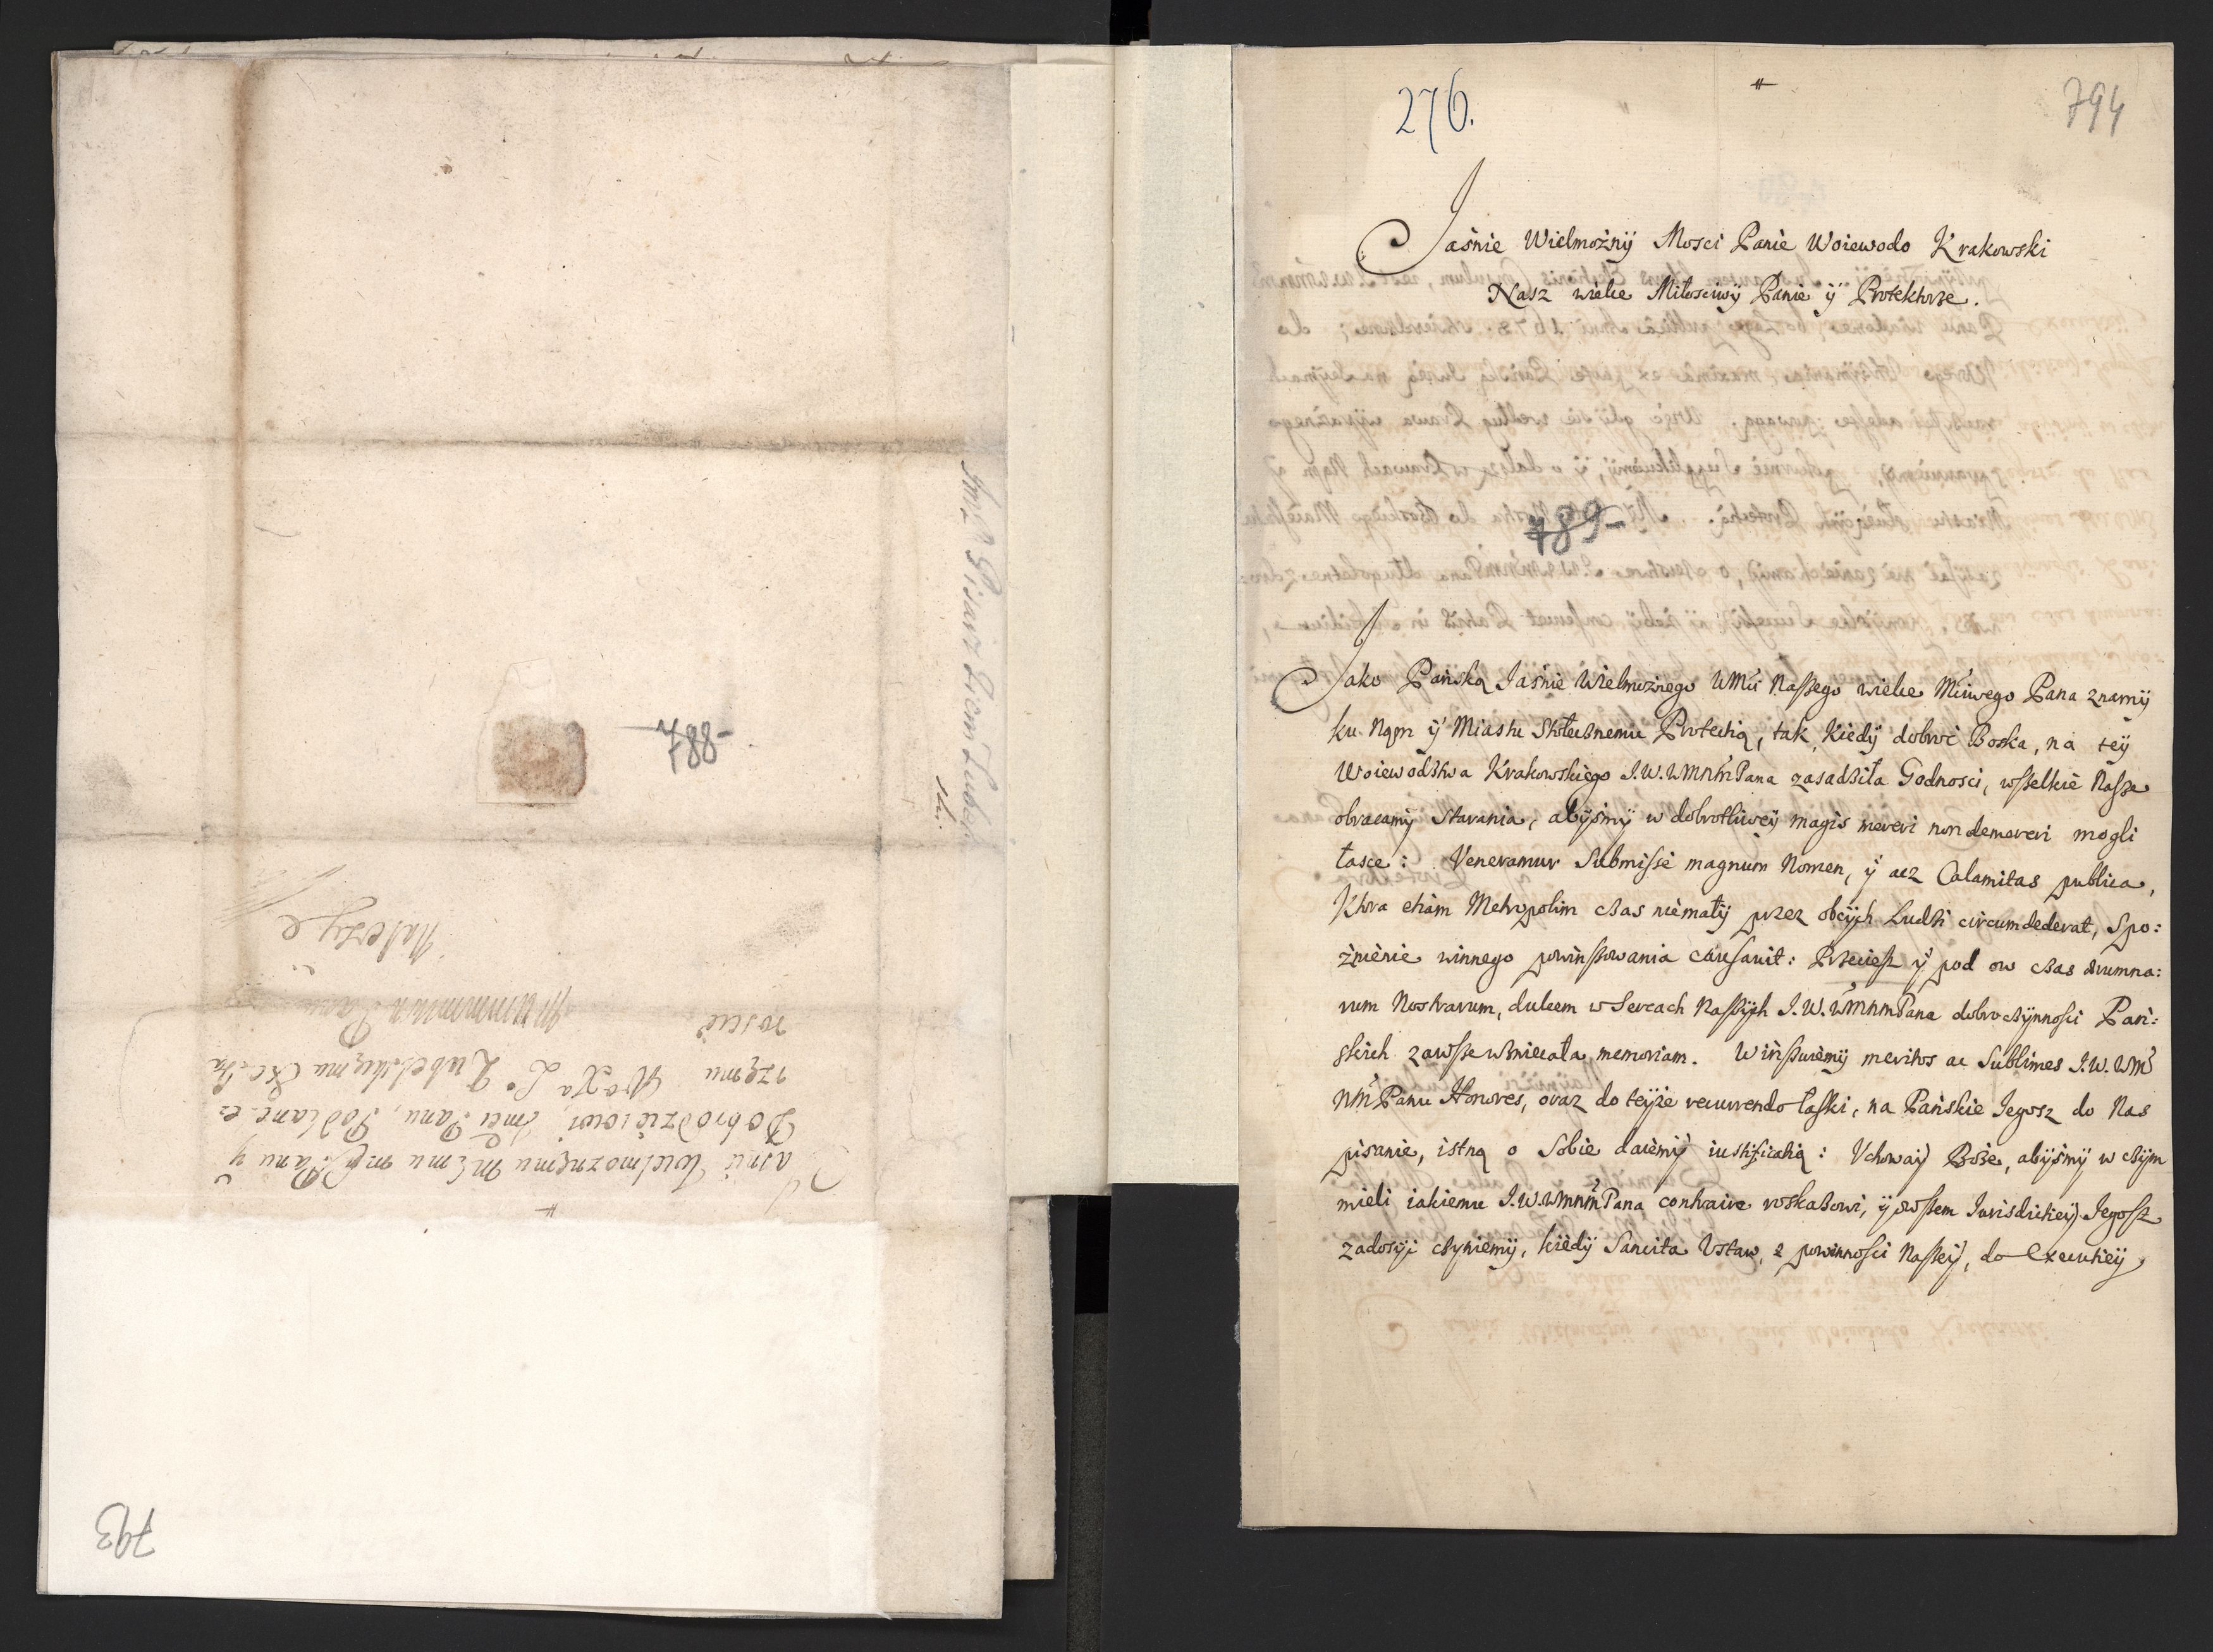 Jasnie Wielmoznemu Memu mſ: Panu y
Dobrodzieiowi Jmci Panu, Podkanc e
rzemu W° X° L° Lubelskiemu &c. Sta
roscie
Należy
788-
Pisarz Ziem Lubel
ski.
793
276.
794
Jaśnie Wielmożnÿ Mosci Panie Woiewodo Krakowski
Nasz wielce Miłosciwÿ Panie ÿ Protektorze.
789-
Jako Pańską Jaśnie Wielmożnego WMci Naſzego wielce Mciwego Pana znamÿ
ku Nąm ÿ Miastu Stołecznemu Protectią, tak, kiedÿ dobroć Boska, na teÿ
Woiewodztwa Krakowskiego J.W.WMNMPana zasadziła Godnosci, wſzelkie Naſze
obracamÿ starania, abÿsmÿ w dobrotliweÿ magis mereri non demereri mogli
łasce: Veneramur Submiſse magnum Nomen, ÿ acz Calamitas publica,
Ktora etiam Metropolim czas niemałÿ przez obcÿch Ludzi circumdederat, Spo:
źnienie winnego powinſzowania causavit: Przecieſz ÿ pod ow czas ærumna:
rum Nostrarum, dulcem w Sercach Naſzÿch J.W.WMNMPana dobroczÿnnoſci Pań:
skich zawſze wzniecała memoriam. Winſzuiemÿ meritos ac Sublimes J.W.WM
NM Panu Honores, oraz do teÿże recurrendo łaſki, na Pańskie Jegosz do Nas
pisanie, istną o Sobie daiemÿ iustificatią: Vchowaÿ Boże, abÿsmÿ w czÿm
mieli iakiemu J.W.WMNMPana contraire roskazowi, ÿ owſzem Jurisdictieÿ Jegoſz
zadosÿc czÿniemÿ, kiedÿ Sancita Vstaw, z powinnoſci Naſzeÿ, do Executieÿ